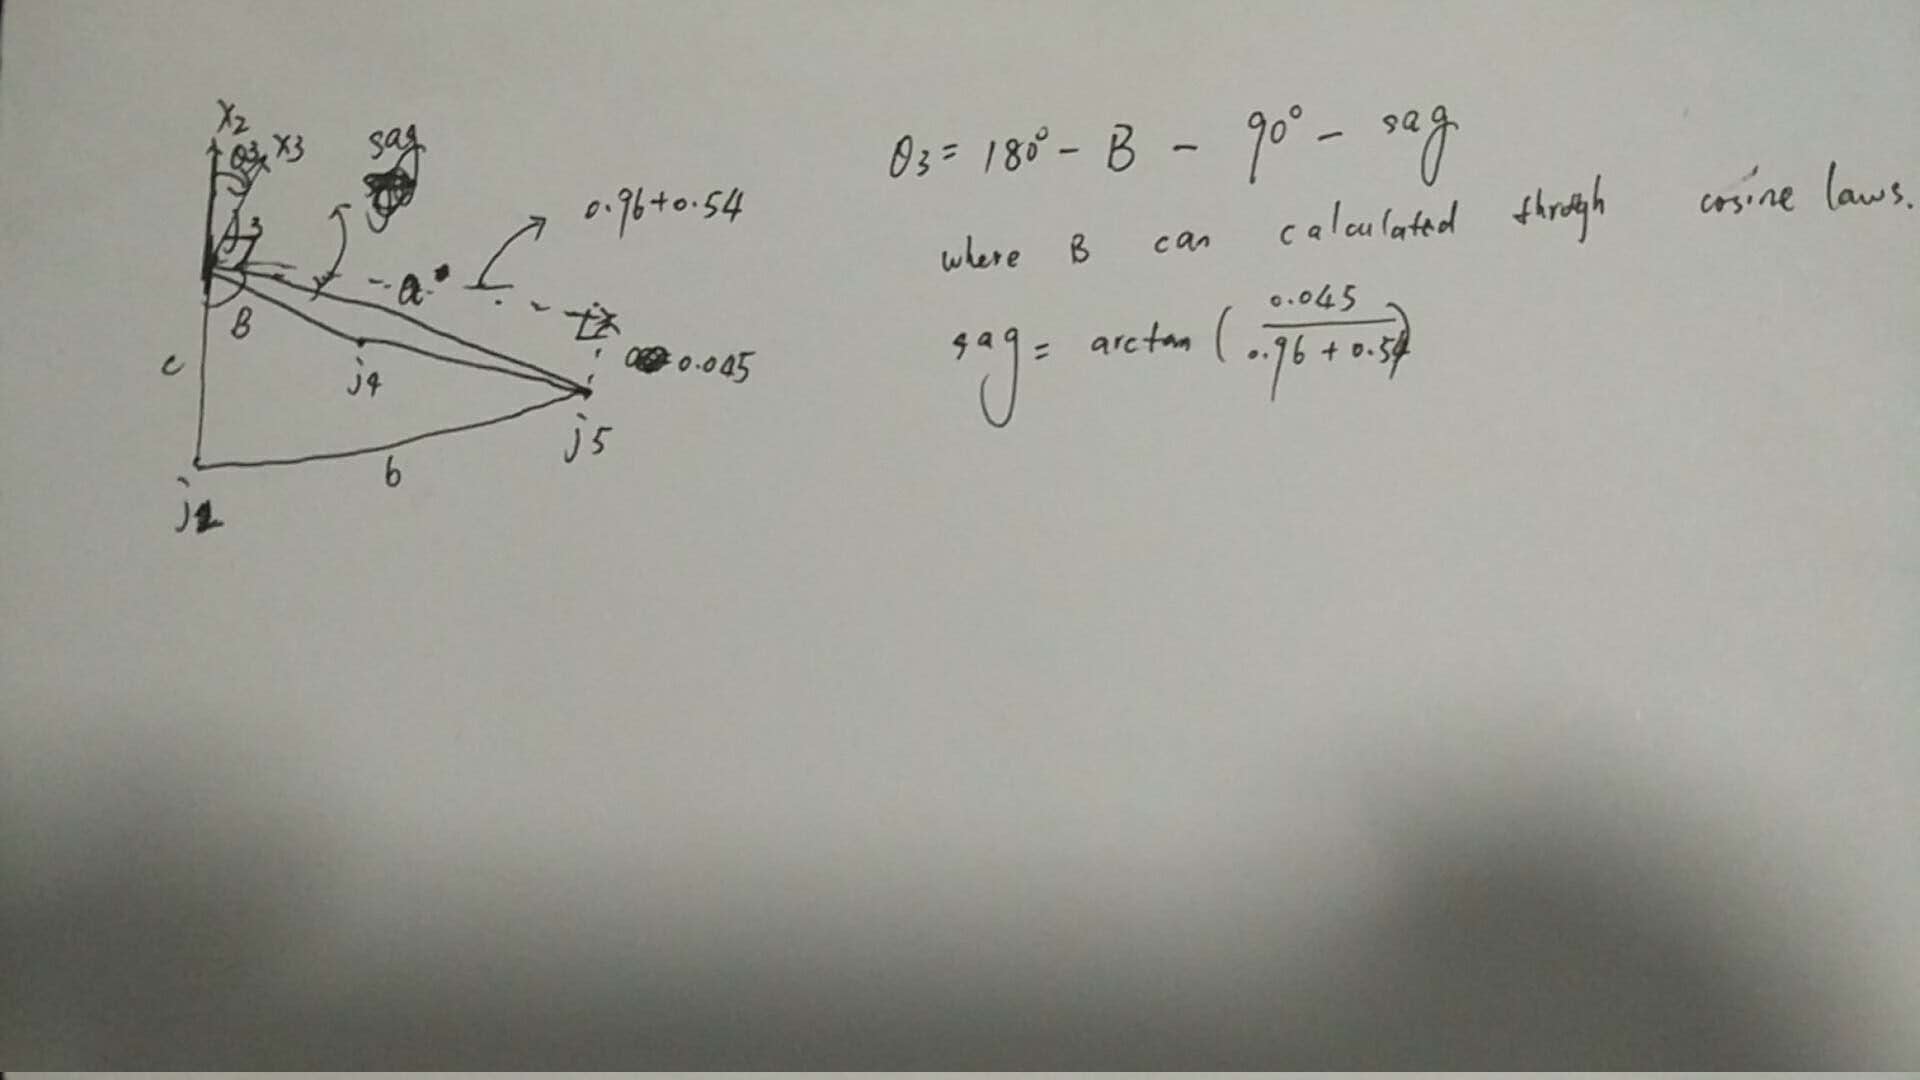 X2
θ3 X3
sag
0.96+0.54
j3
a
B
c
j4
0.045
j5
b
j2
θ3 = 180° - B - 90° - sag
where B can calculated throgh cosine laws.
sag = arctan ( 0.045 / 0.96 + 0.54 )